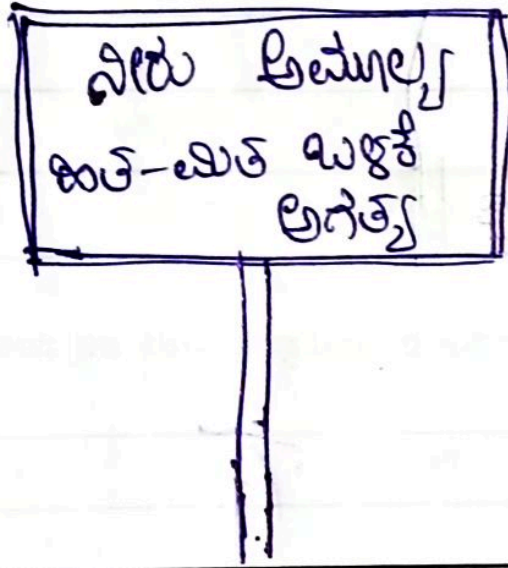 ನೀರು ಅಮೂಲ್ಯ
ಹಿತ-ಮಿತ ಬಳಕೆ
ಅಗತ್ಯ